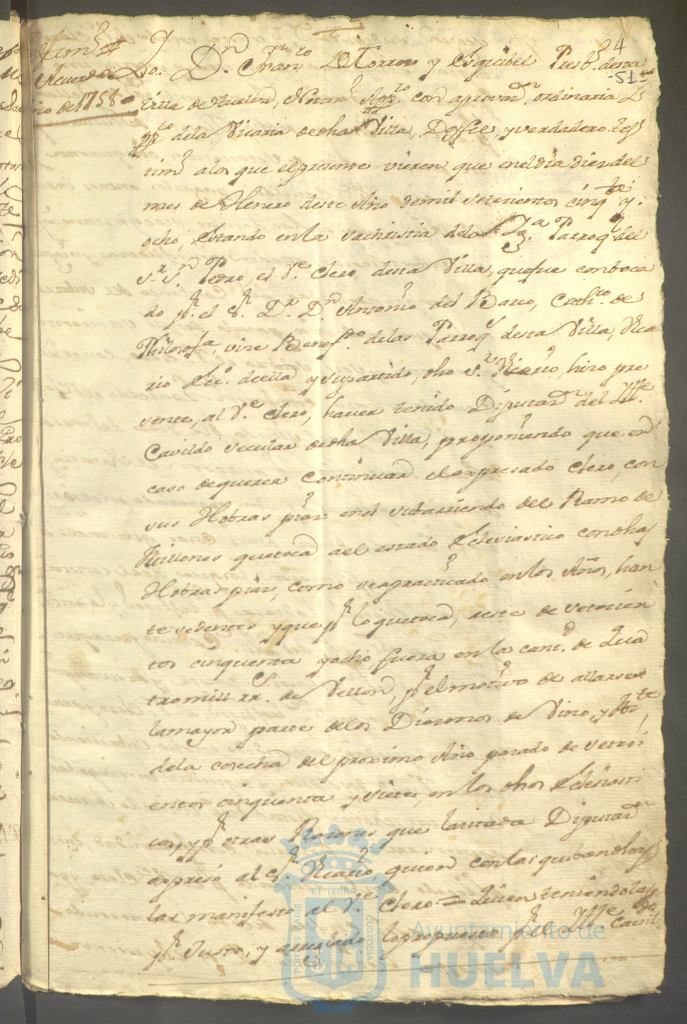 4
51
Acuerdo
de 1758
Yo Dn. Franco. Torres y Esquibel Presbo. desta
Villa de Huelva, Notario con aprovon. ordinaria
de la Vicaria de dha Villa, Doi fee, y verdadero tes
timo. a los que el presente vieren que en el dia diez del
mes de Henero deste Año de mil setecientos cinqta. y
ocho, Estando en la sachristia de la Parroql. del
Sr. Sn. Pedro, el Ve. Clero, desta Villa, que fue conboca
do pr. el Sr. Dr. Dn. Antonio del Barco, Cathco. de
Philosofa, vice Benefdo. de las Parroqs. desta Villa, Vica
rio de ella y su partido, dho Sr. Vicario, hizo pre
sente, al Ve. Clero, haver tenido Diputaon. del Ille.
Cavildo secular de dha Villa, proponiendo que en
caso de querer continuar el expresado Clero, con
sus Hobras pias en el subarriendo del Ramo de
Millones que toca al estado Eclesiastico con dhas
Hobras pias, como se a practicado en los Años, han
tesedentes y que pr. lo que toca, a este de setecien
tos cinquenta y ocho fuera en la cantd. de qua
tro mill rrs. de Vellon, pr. el motivo de allarse
la mayor parte de los Diesmos de Vino,
de la cosecha del proximo Año pasado de seteci
entos cinquenta y siete, en los dhos Eclesiasti
cos, y pr. otras Rasones que la citada Diputaon.
expresó al Sr. Vicario, quien con las que ban dhas
las manifesto al Ve. Clero = Quien teniendolas
pr. Justo, y arreglado lo propuesto pr. el Ille. Cavildo
Ayuntamiento de
HUELVA